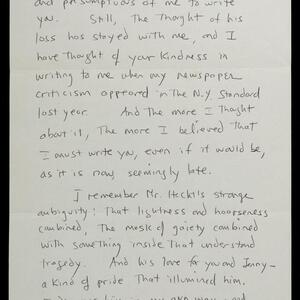 and presumptuous of me to write
you. Still, The Thought of his
loss has stayed with me, and I
have Thought of your Kindness in
writing to me when my newspaper
criticism appeared in The N.Y. Standard
last year. And the more I Thought
about it, The more I believed That
I must write you, even if it would be,
as it is now, seemingly late.
I remember Mr. Hecht's strange
ambiguity: That lightness and hoarseness
combined, The mask of gaiety combined
with something inside That understood
tragedy. And his love for you and Jenny—
a Kind of pride That illumined him.